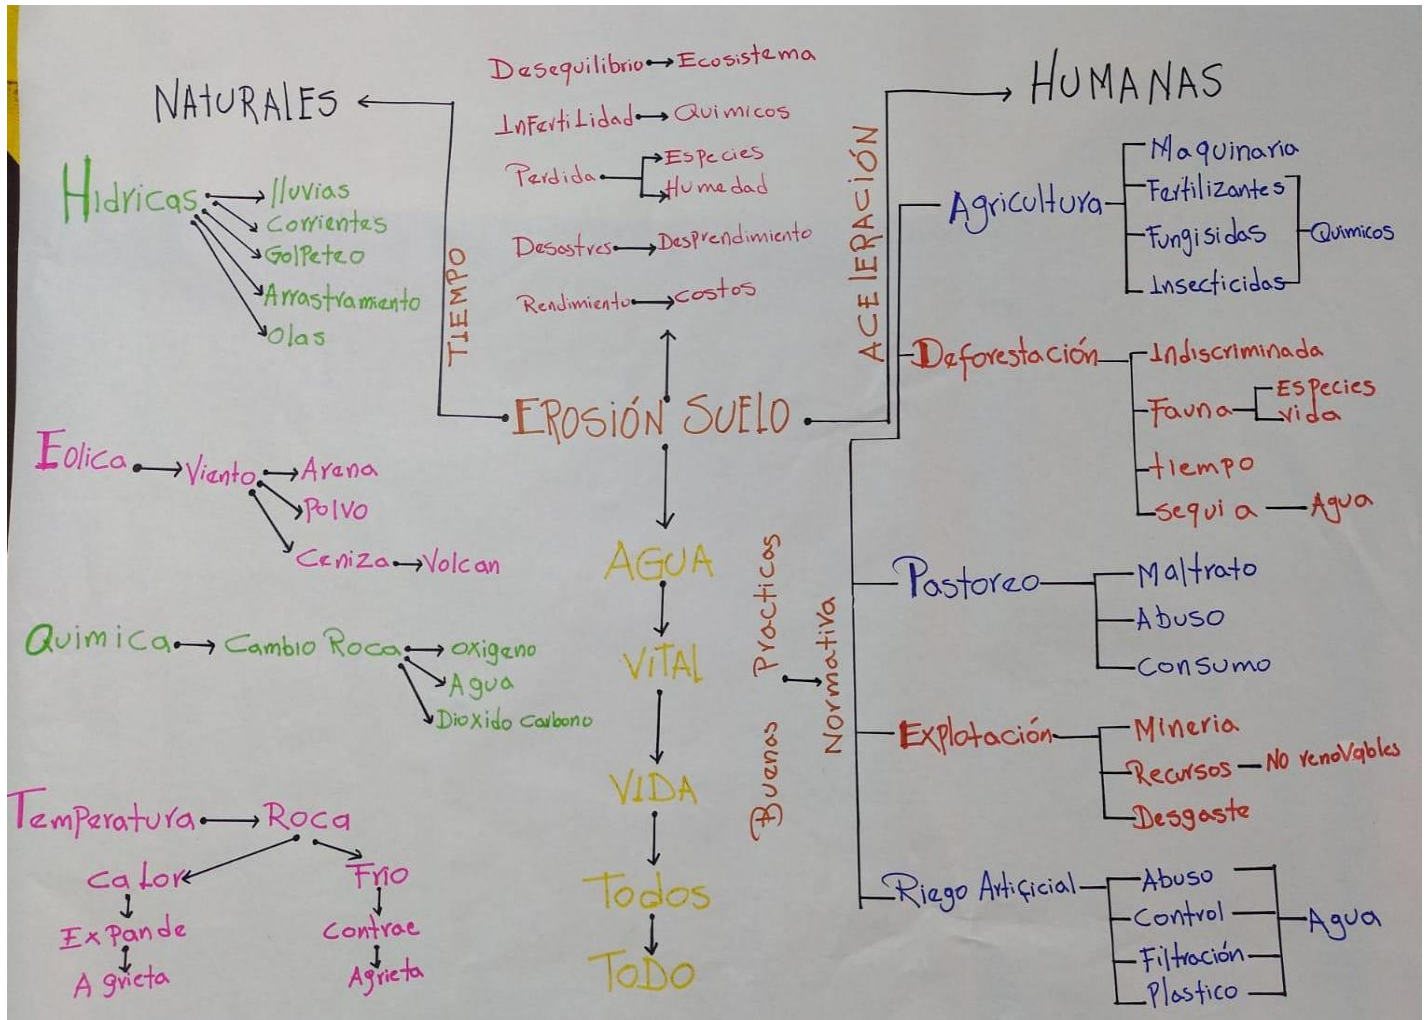 NATURALES
Hidricas
lluvias
Corrientes
GolPeteo
Arrastramiento
Olas
Eolica
Viento
Arena
Polvo
Ceniza
Volcan
Quimica
Cambio Roca
oxigeno
Agua
Dioxido carbono
Temperatura
Roca
Calor
Expande
Agrieta
Frio
Contrae
Agrieta
TIEMPO
Desequilibrio
Ecosistema
InFertiLidad
Quimicos
Perdida
Especies
Humedad
Desastres
Desprendimiento
Rendimiento
costos
EROSIÓN SUELO
AGUA
VITAL
VIDA
Todos
ToDO
Buenas Practicas
Normativa
ACELERACIÓN
HUMANAS
Agricultura
Maquinaria
Fertilizantes
Fungisidas
Insecticidas
Quimicos
Deforestación
Indiscriminada
Fauna
Especies
vida
tiempo
sequia
Agua
Pastoreo
Maltrato
Abuso
Consumo
Explotación
Mineria
Recursos
NO renovables
Desgaste
Riego Artificial
Abuso
Control
Filtración
Plastico
Agua